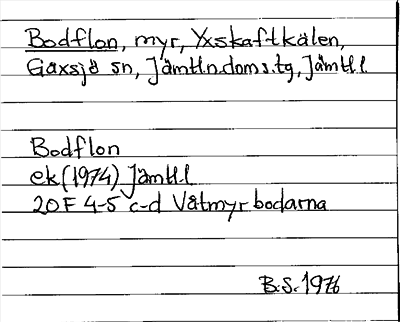 Bodflon, myr, Yxskaftkälen,
Gåxsjö sn, Jämtl.n.doms.tg, Jämtl.l
Bodflon
ek (1974) Jämtl.l
20F 4-5 c-d Våtmyrbodarna
B.S. 1976